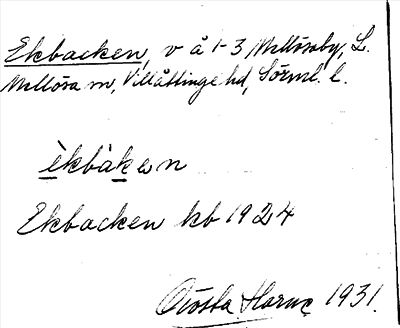 Ekbacken, v å 1-3 Mellösaby, L.
Mellösa sn, Villåttinge hd, Sörml. l.
èkbàkɐn
Ekbacken kb 1924
Gösta Harne 1931.